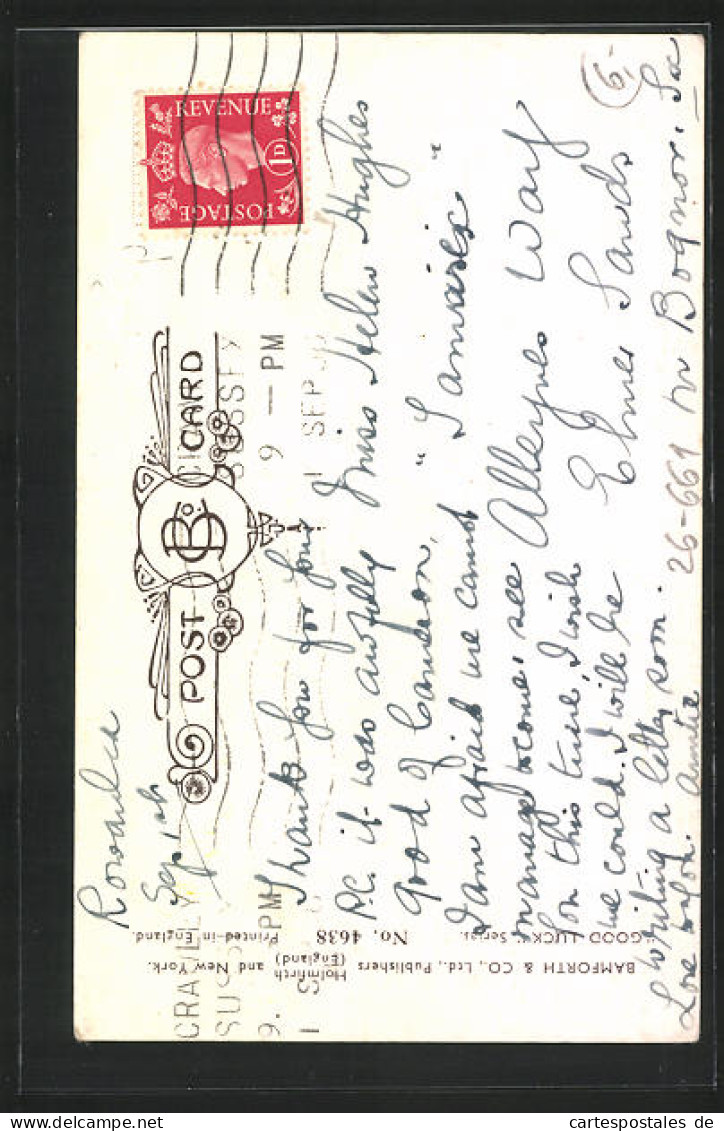 POST CARD
B & Co.
POSTAGE
REVENUE
1D
CRAWLEY
SUSSEX
9 — PM
1 SEP
BAMFORTH & CO., LTD., Publishers
Holmfirth (England) and New York.
"GOOD LUCK" Series. No. 4638 Printed in England.
Sep 1st
Thank you for your
P.C. it was awfully
good of Cameron,
I am afraid we cannot
manage to come & see
you this time, I wish
we could. I will be
writing a letter soon.
Love
Miss Helen Hughes
Alleynes Way
Elmer Sands
Nr Bognor. Sx
26-661
6,-
www.cartespostales.de